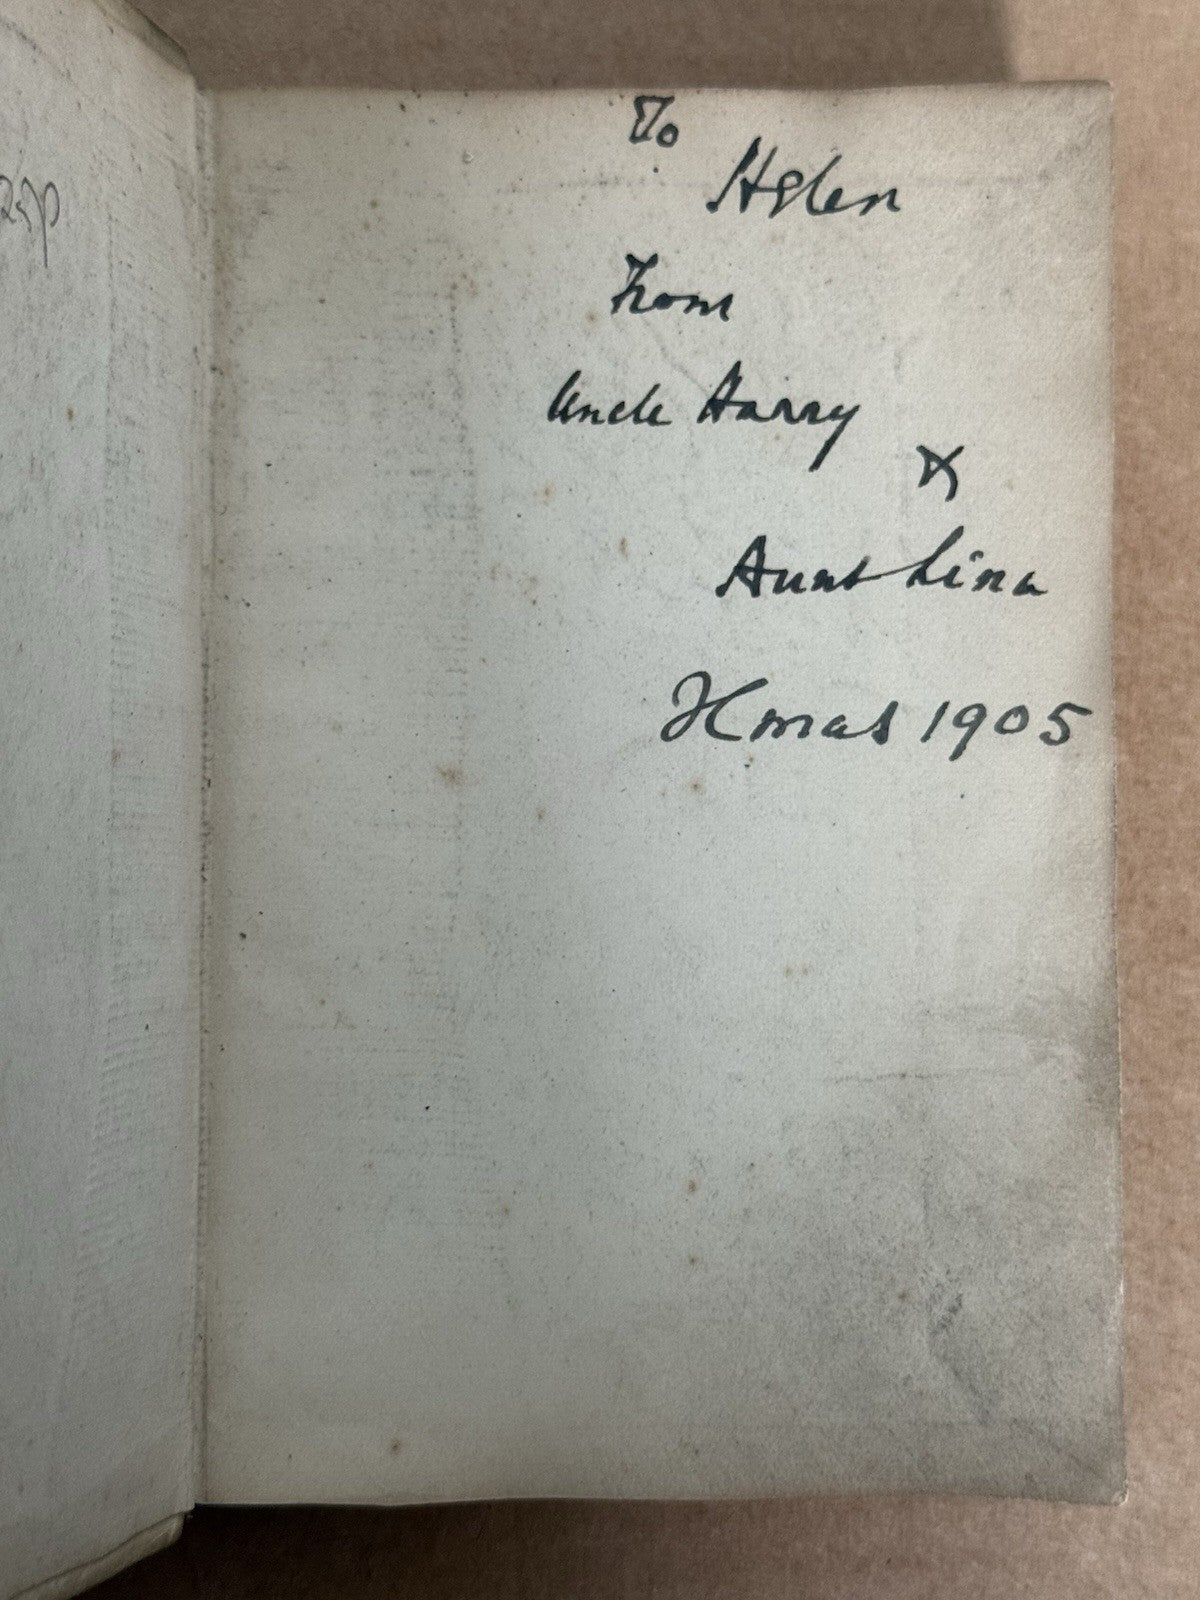 To
Helen
From
Uncle Harry
&
Aunt Lina
Xmas 1905